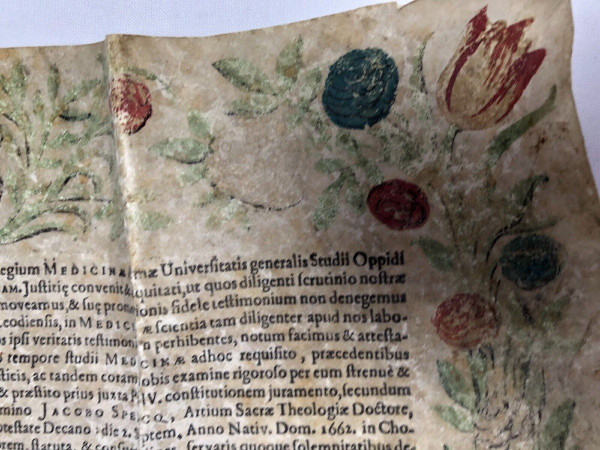 egium MEDICINÆ mæ Univerſitatis generalis Studii Oppidi
AM. Juſtitię convenit & quitati, ut quos diligenti ſcrutinio noſtræ
moveamus, & ſuę promo ionis fidele teſtimonium non denegemus
eodienſis, in MEDIC Æ ſcientia tam diligenter apud nos labo-
s ipſi veritatis teſtimon n perhibentes, notum facimus & atteſta-
s tempore ſtudii MED CINÆ adhoc requiſito, præcedentibus
ſticis, ac tandem coram obis examine rigoroſo per eum ſtrenuè &
& præſtito prius juxta IV. conſtitutionem juramento, ſecundum
mino JACOBO SPE CO, Artium Sacræ Theologiæ Doctore,
oteſtate Decano: die 2. Sptem. Anno Nativ. Dom. 1662. in Cho-
rem, ſtatuta, & conſue ſervatis quoque ſolemnitatibus de-